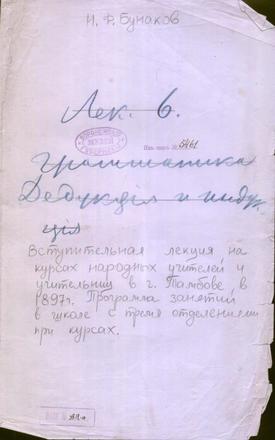 Н. Ф. Бунаков
Лек. 6.
Инв. книг. № 5461
Грамматика
Дедукція и индук
ція
Вступительная лекция на
курсах народных учителей и
учительниц в г. Тамбове в
1897г. Программа занятий
в школе с тремя отделениями
при курсах.